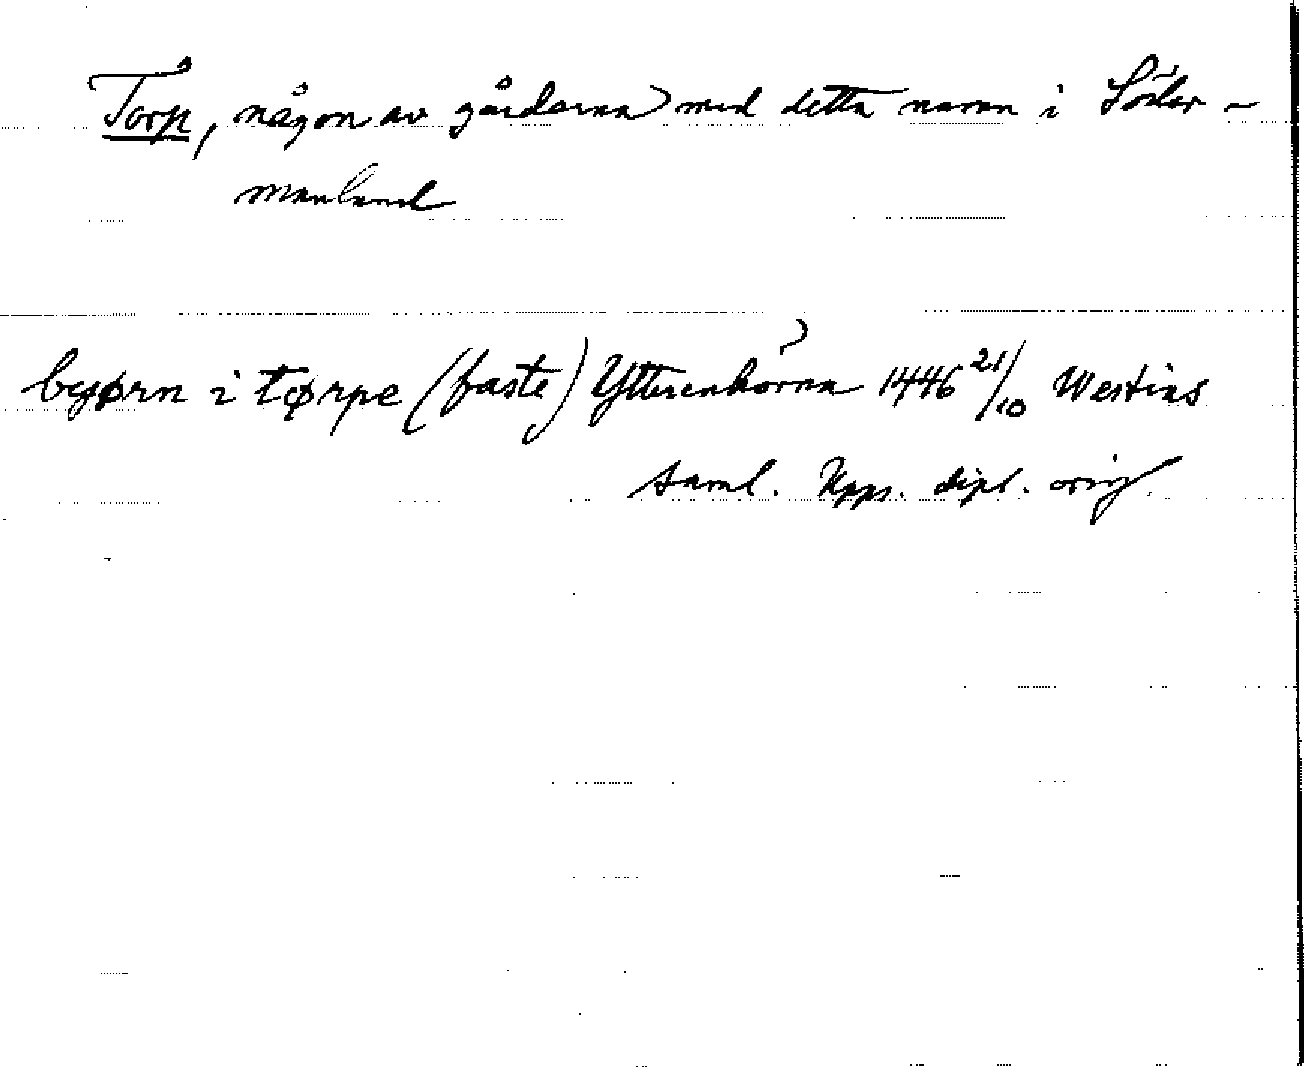 Torp, någon av gårdarna med detta namn i Söder-
manland
begørn i tørpe (faste) Ytterenhörna 1446 21/10 Westins
saml. Upps. dipl. orig.